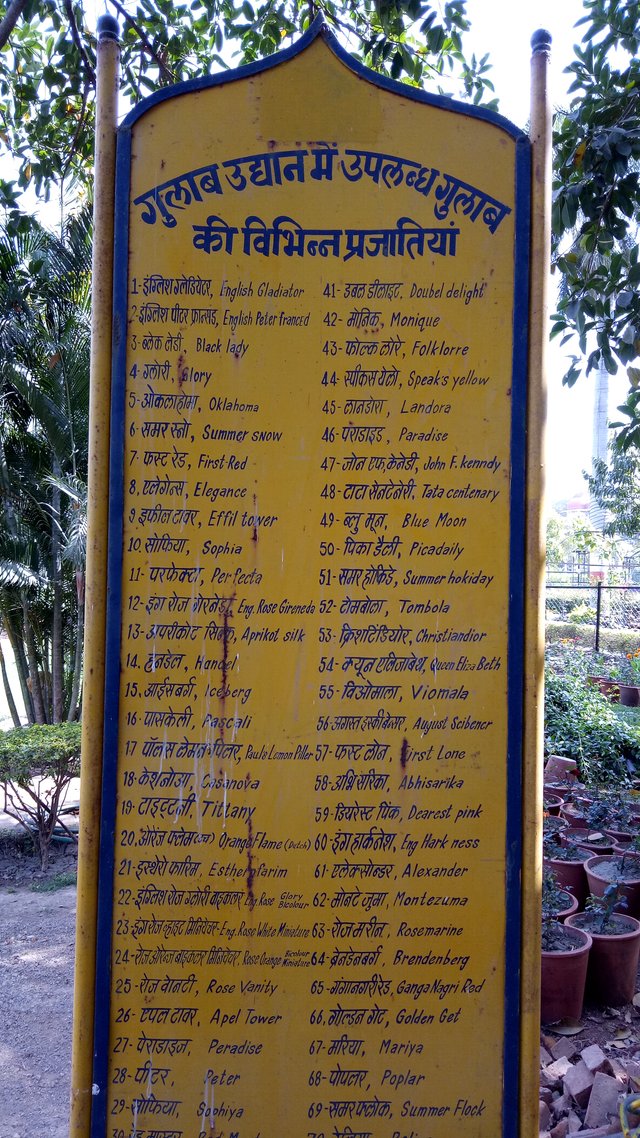 गुलाब उद्यान में उपलब्ध गुलाब
की विभिन्न प्रजातियां
1-इंग्लिश ग्लेडियेटर, English Gladiator
2-इंग्लिश पीटर फ्रान्सड, English Peter franced
3-ब्लेक लेडी, Black lady
4-गलोरी, Glory
5-ओकलाहोमा, Oklahoma
6-समर स्नो, Summer snow
7-फस्ट रेड, First-Red
8, एलेगेन्स, Elegance
9 इफील टावर, Effil tower
10, सोफिया, Sophia
11- परफेक्टा, Perfecta
12- इंग रोज गेरनेडा, Eng. Rose Gireneda
13- अपरीकोट सिल्क, Aprikot silk
14, हेनडेल, Handel
15, आईसबर्ग, Iceberg
16- पासकेली, Pascali
17 पॉलस लेमन पिलर, Paule Lemon Piller
18- केशनोआ, Casanova
19- टाइटनी, Tittany
20, ओरेंज फ्लेम (डच) Orange Flame (Dutch)
21- इस्थेरो फारिम, Esther ofarim
22- इंग्लिश रोज गलोरी बाइकलर, Eng. Rose Glory Bicolour
23 इंग रोज व्हाइट मिनियेचर- Eng. Rose White Miniature
24- रोज ओरेन्ज बाइकलर मिनियेचर, Rose Orange Bicolour Miniature
25- रोज वेानटी, Rose Vanity
26- एपल टावर, Apel Tower
27- पेराडाइज, Peradise
28- पीटर, Peter
29- सोफिया, Sophiya
41- डबल डीलाइट, Doubel delight
42- मोनिक, Monique
43- फोल्क लोरे, Folklorre
44- स्पीकस येलो, Speak's yellow
45- लानडोरा, Landora
46- पेराडाइड, Paradise
47-जोन एफ.केनेडी, John F. kenndy
48- टाटा सेनटेनेरी, Tata centenary
49- ब्लु मून, Blue Moon
50- पिका डैली, Picadaily
51- समर होकिडे, Summer hokiday
52- टोमबोला, Tombola
53- क्रिशटिंडियोर, Christiandior
54- क्यून एलिजाबेथ, Queen Eliza Beth
55- विओमाला, Viomala
56-अगस्त इस्कीबेन्सर, August Scibencr
57- फस्ट लोन, First Lone
58- अभिसारिका, Abhisarika
59- डियरेस्ट पिंक, Dearest pink
60- इंग हार्कनेश, Eng Hark ness
61- एलेक्सोन्डर, Alexander
62- मोनटे जुमा, Montezuma
63- रोजमरीन, Rosemarine
64- ब्रेनडेनबर्ग, Brendenberg
65- गंगानगरी रेड, Ganga Nagri Red
66, गोल्डन गेट, Golden Get
67- मरिया, Mariya
68- पोपलर, Poplar
69- समर फ्लोक, Summer Flock